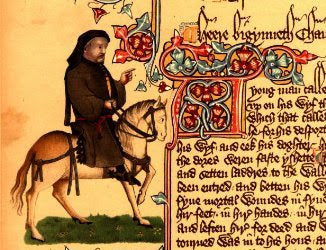 Heere bigynneth Chau
yong man called
his wyf
Which that called
he for his desport
his wyf and eek his doghter
the dores weren faste yshette
and setten laddres to the walle
been entred and betten his wyf
fyve mortal woundes in fyve
hir feet in hir handes in hir
and leften hir for deed and
torned was in to his hous